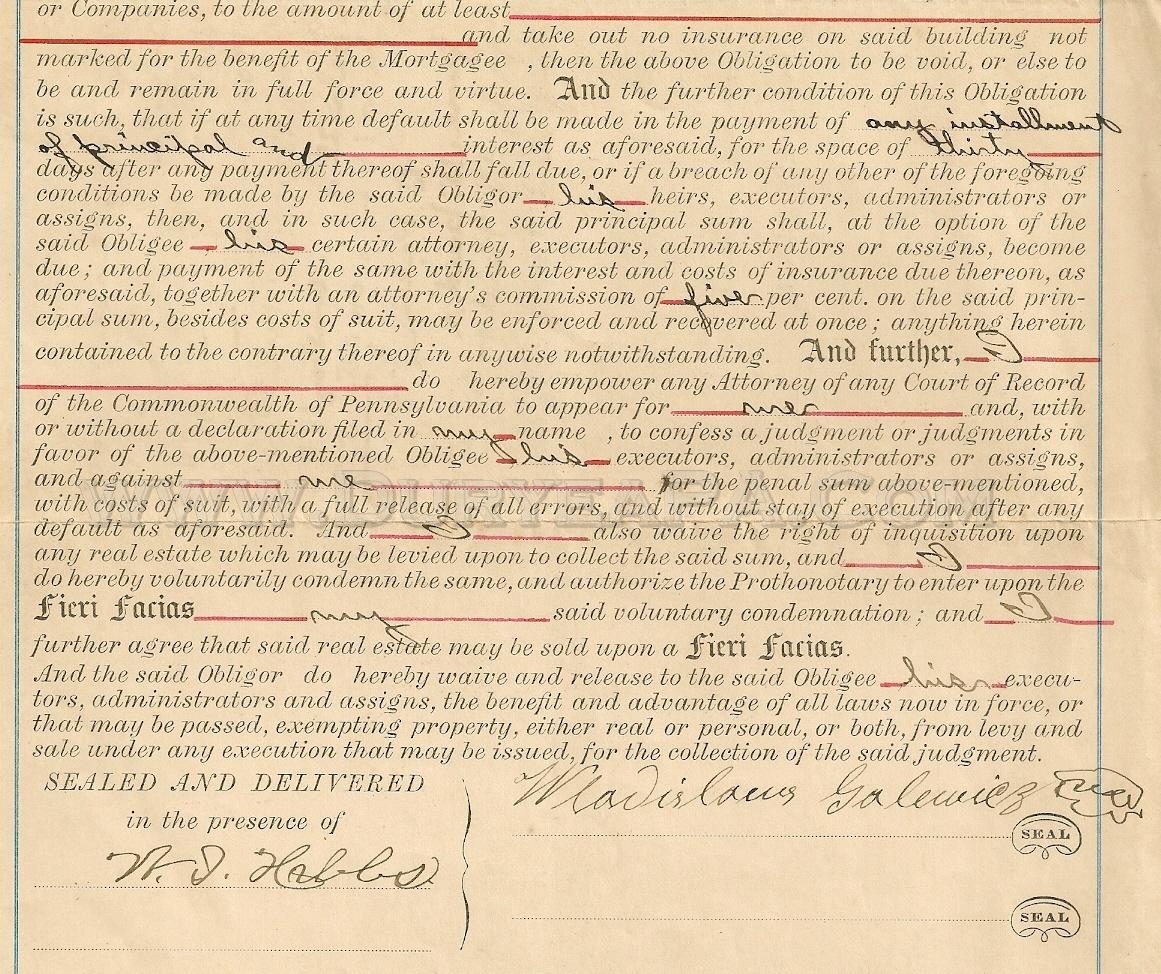 or Companies, to the amount of at least
and take out no insurance on said building not
marked for the benefit of the Mortgagee , then the above Obligation to be void, or else to
be and remain in full force and virtue. And the further condition of this Obligation
is such, that if at any time default shall be made in the payment of any installment
of principal and interest as aforesaid, for the space of thirty
days after any payment thereof shall fall due, or if a breach of any other of the foregoing
conditions be made by the said Obligor his heirs, executors, administrators or
assigns, then, and in such case, the said principal sum shall, at the option of the
said Obligee his certain attorney, executors, administrators or assigns, become
due; and payment of the same with the interest and costs of insurance due thereon, as
aforesaid, together with an attorney's commission of five per cent. on the said prin-
cipal sum, besides costs of suit, may be enforced and recovered at once; anything herein
contained to the contrary thereof in anywise notwithstanding. And further, I
do hereby empower any Attorney of any Court of Record
of the Commonwealth of Pennsylvania to appear for me and, with
or without a declaration filed in my name , to confess a judgment or judgments in
favor of the above-mentioned Obligee his executors, administrators or assigns,
and against me for the penal sum above-mentioned,
with costs of suit, with a full release of all errors, and without stay of execution after any
default as aforesaid. And I also waive the right of inquisition upon
any real estate which may be levied upon to collect the said sum, and I
do hereby voluntarily condemn the same, and authorize the Prothonotary to enter upon the
Fieri Facias my said voluntary condemnation; and I
further agree that said real estate may be sold upon a Fieri Facias.
And the said Obligor do hereby waive and release to the said Obligee his execu-
tors, administrators and assigns, the benefit and advantage of all laws now in force, or
that may be passed, exempting property, either real or personal, or both, from levy and
sale under any execution that may be issued, for the collection of the said judgment.
SEALED AND DELIVERED
in the presence of
W. I. Hibbs
Wladislaus Galewicz Seal
SEAL
SEAL
WWW.DURYEAPA.COM